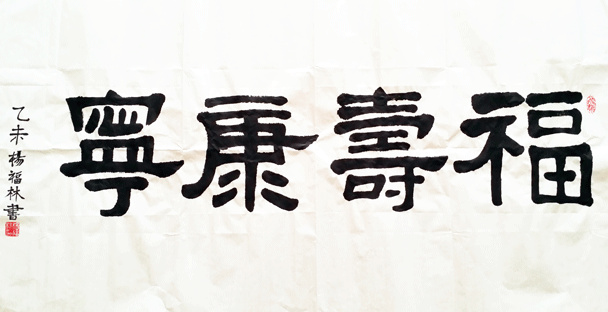 福壽康寧
乙未楊福林書